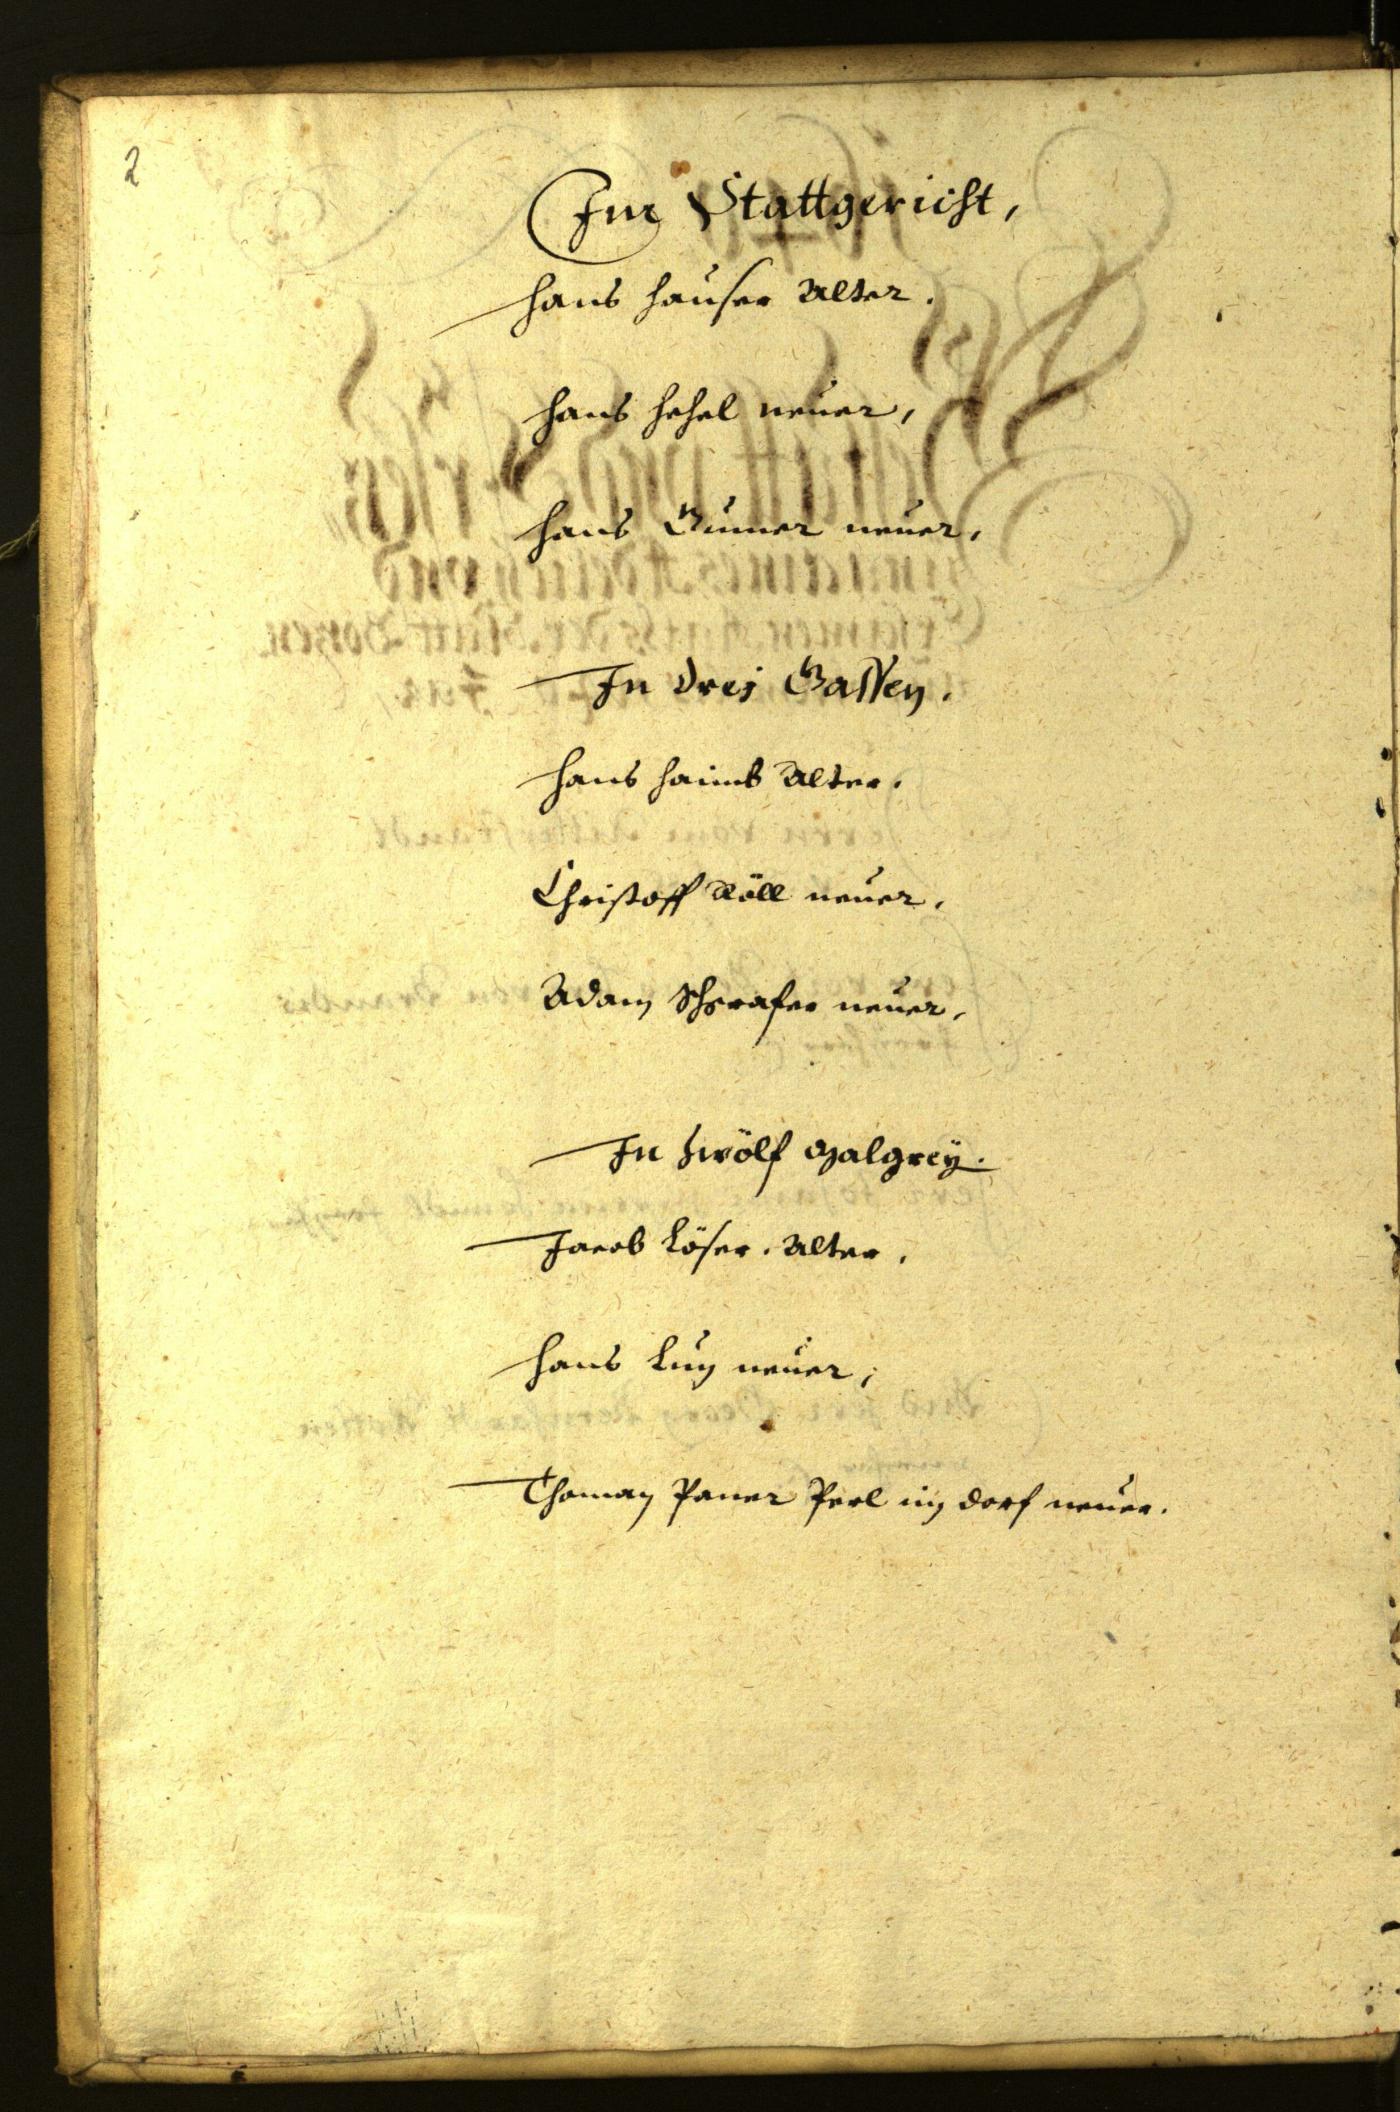 2
Im Stattgericht,
Hans Hauser Alter.
Hans Hehel neuer,
Hans Gumer neuer,
In drej Gassen.
Hans Haimb Alter.
Christoff Röll neuer.
Adam Schrafer neuer.
In Zwölf Malgrey.
Jacob Löser. Alter.
Hans Lun neuer,
Thoman Paner Perl im dorf neuer.